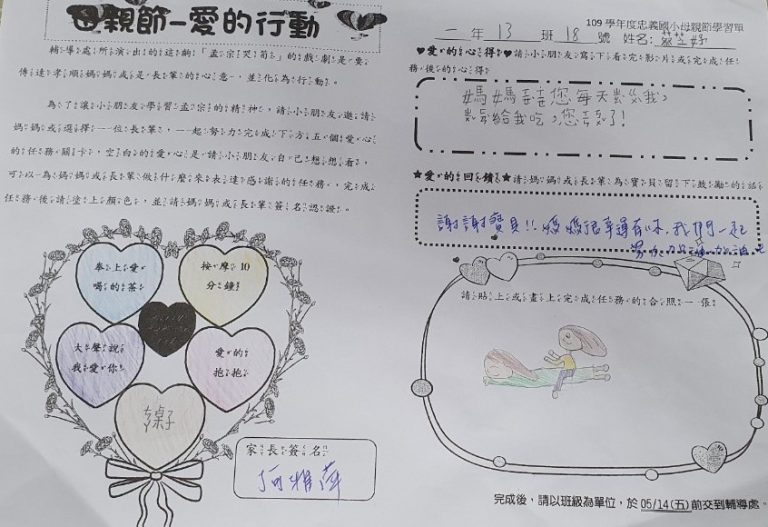 母親節－愛的行動
輔導處所演出的這齣「孟宗哭筍」的戲劇是要
傳達孝順媽媽或是長輩的心意，並化為行動。
為了讓小朋友學習孟宗的精神，請小朋友邀請
媽媽或選擇一位長輩，一起努力完成下方五個愛心
的任務關卡，空白的愛心是請小朋友自己想想看，
可以為媽媽或長輩做什麼來表達感謝的任務，完成
任務後請塗上顏色，並請媽媽或長輩簽名認證。
奉上愛
喝的茶
按摩10
分鐘
大聲說
我愛你
愛的
抱抱
家長簽名
109 學年度忠義國小母親節學習單
二年 13 班 18 號 姓名：
♥愛的心得♥請小朋友寫下看完影片或完成任
務後的心得
媽媽 您每天
給我吃，您 了！
★愛的回饋★請媽媽或長輩為寶貝留下鼓勵的話
謝謝寶貝!! 媽媽很幸運有妳，我們一起
努力加油加油吧
請貼上或畫上完成任務的合照一張
完成後，請以班級為單位，於 05/14(五)前交到輔導處。